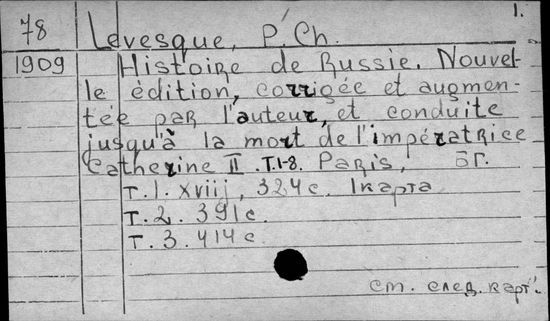 1.
78 Levesque, P. Ch.
1909 Histoire de Russie. Nouvel-
le édition, corrigée et augmen-
tée par l'auteur, et conduite
jusqu'à la mort de l'impératrice
Catherine II. Т.1-8. Paris, БГ.
Т.1. XVIIj, 324 с. 1 карта
Т.2. 391 с.
Т.3. 414 с.
См. след. карт.